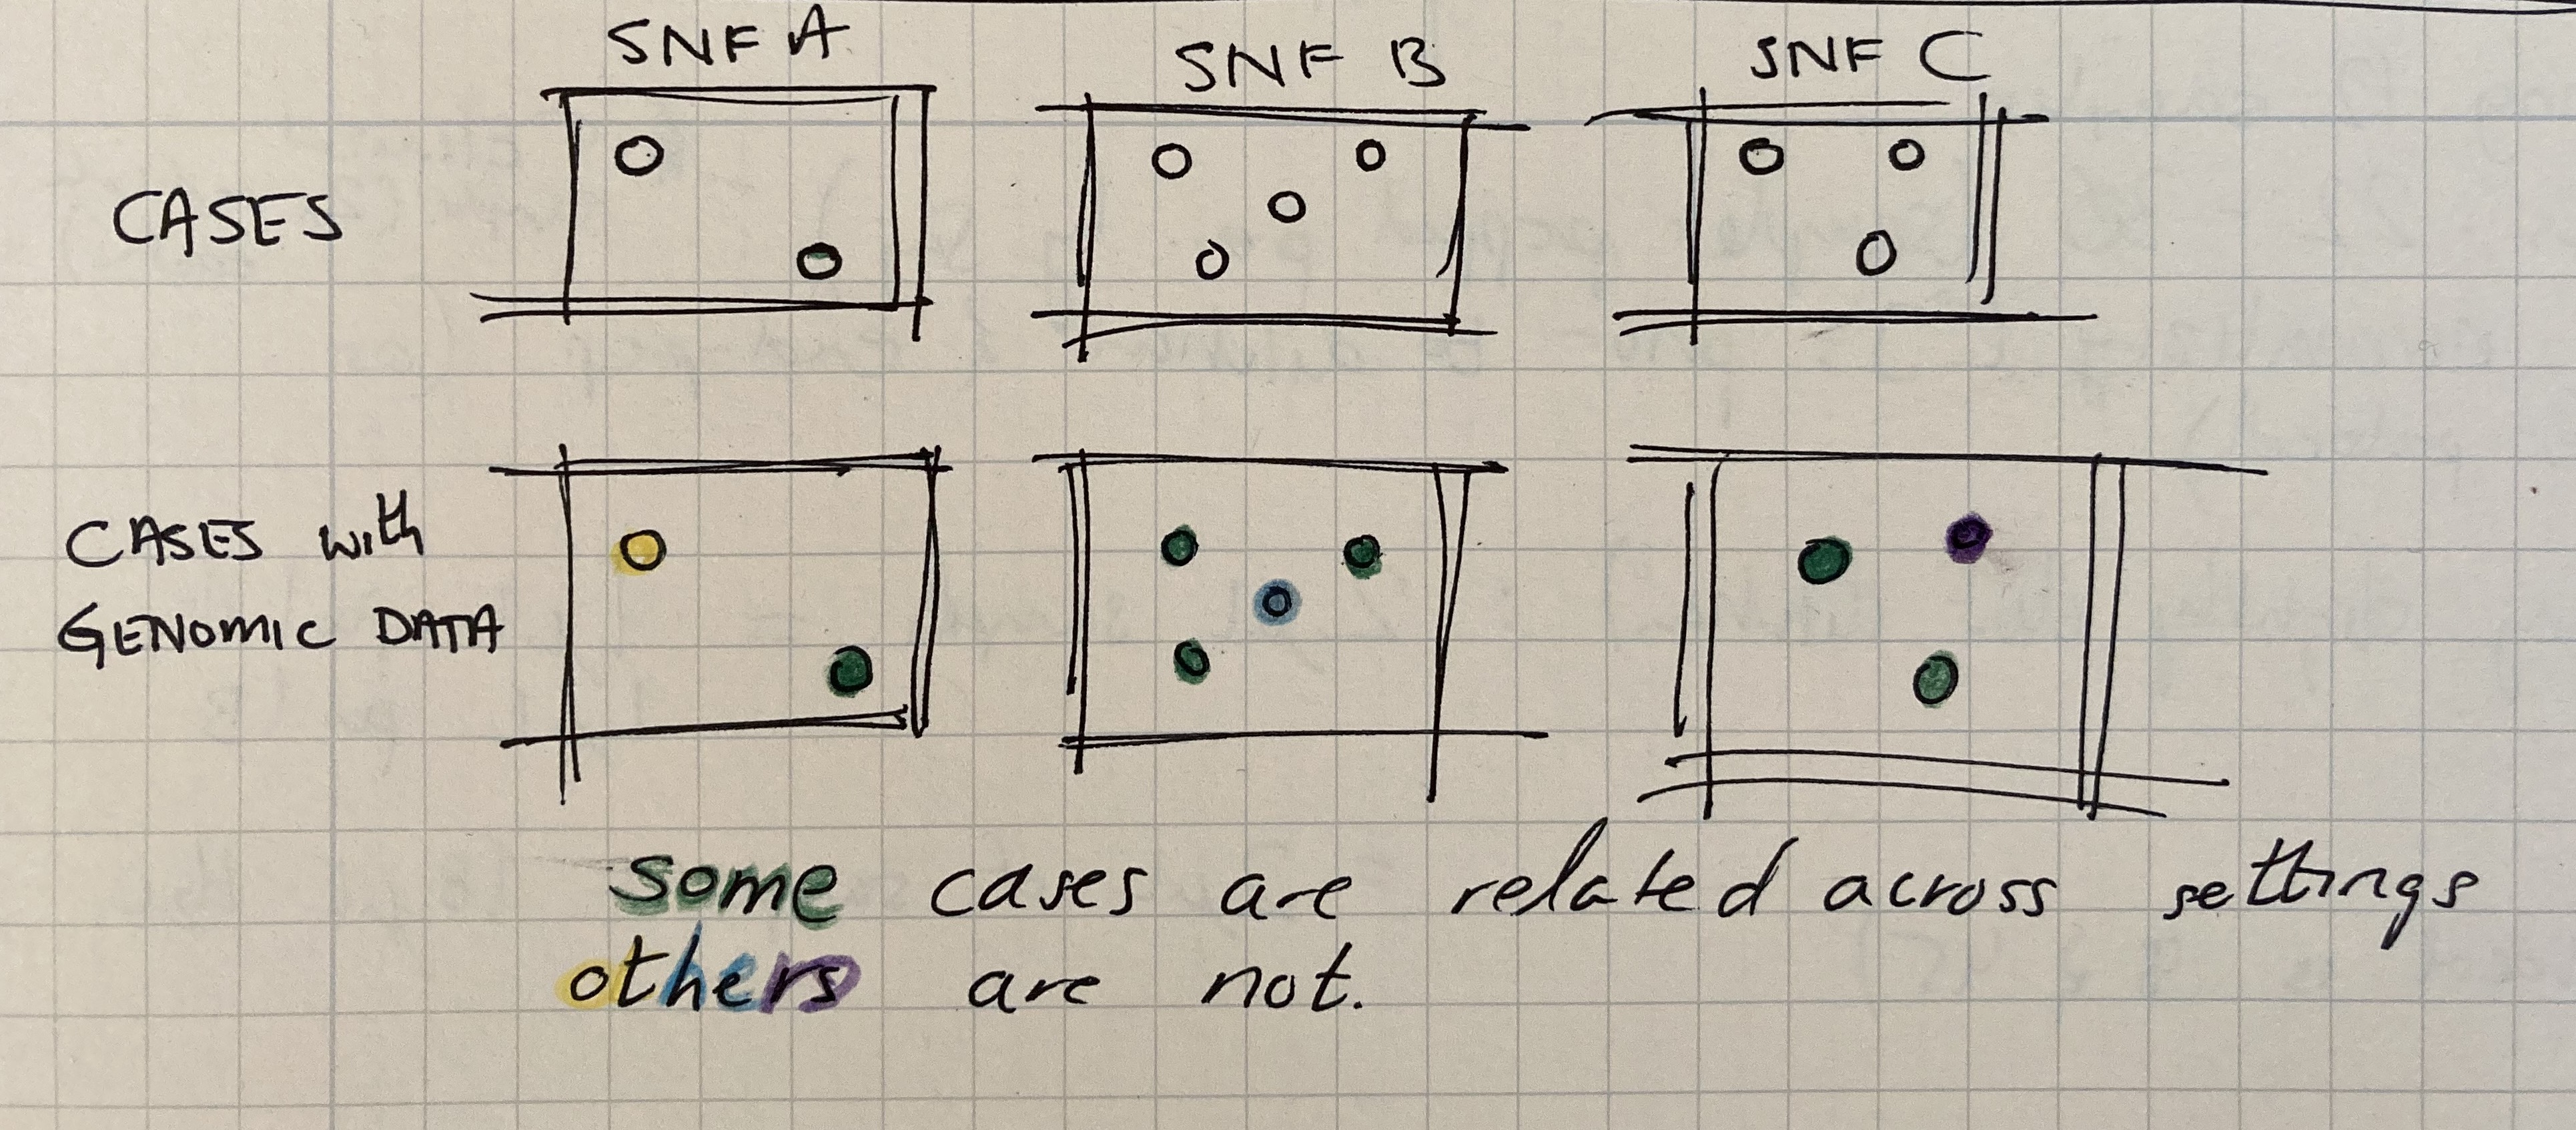 SNF A
SNF B
SNF C
CASES
CASES with
GENOMIC DATA
some cases are related across settings
others are not.